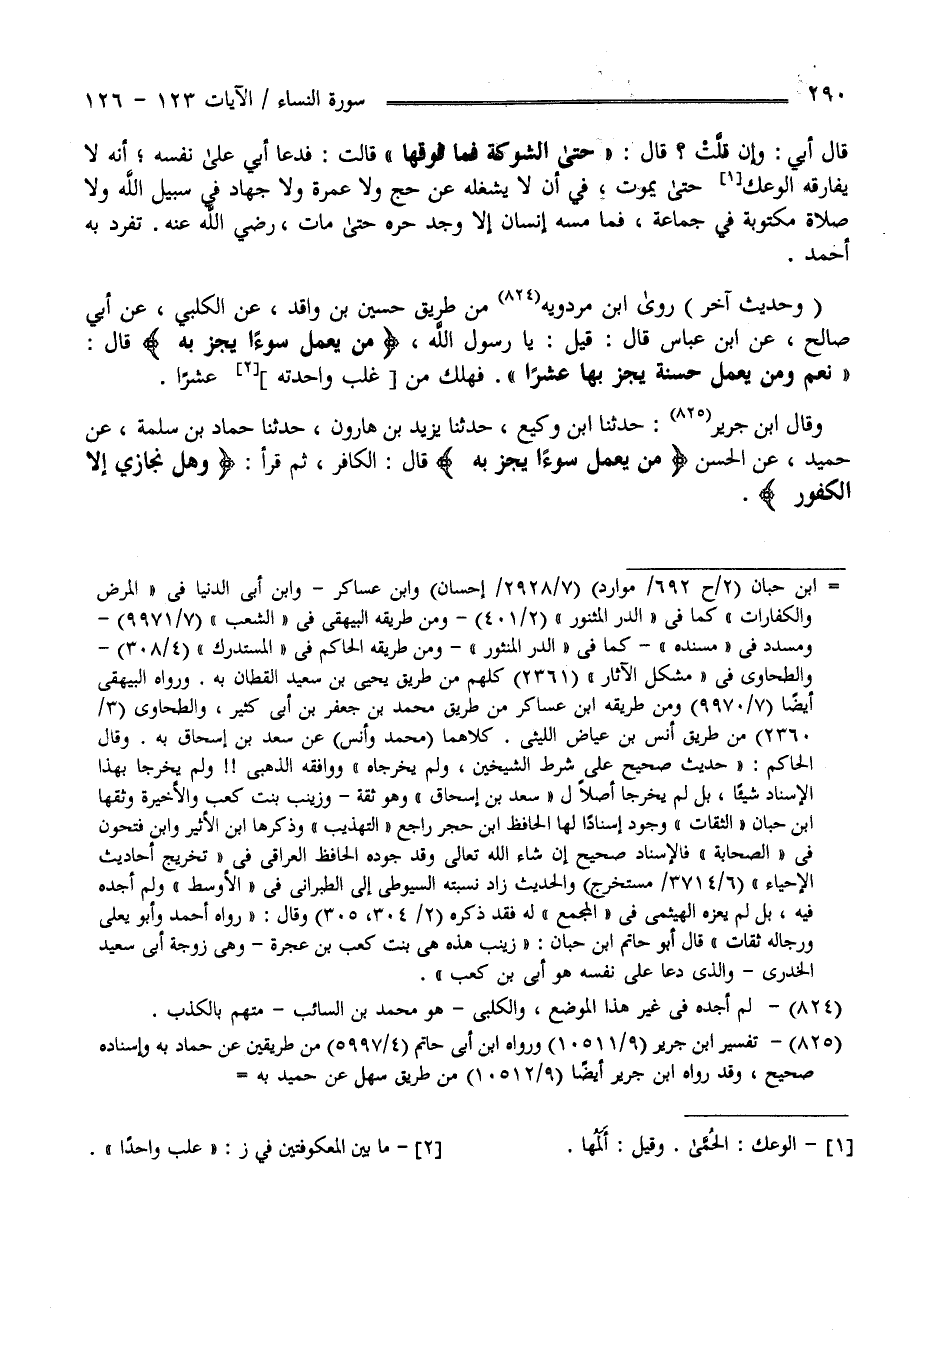 ٢٩٠ سورة النساء / الآيات ١٢٣ - ١٢٦
قال أبي : وإن قلَّتْ ؟ قال : « حتىٰ الشوكة فما فوقها » قالت : فدعا أبي علىٰ نفسه ؛ أنه لا
يفارقه الوعك[١] حتىٰ يموت ، في أن لا يشغله عن حج ولا عمرة ولا جهاد في سبيل اللَّه ولا
صلاة مكتوبة في جماعة ، فما مسه إنسان إلا وجد حره حتىٰ مات ، رضي اللَّه عنه . تفرد به
أحمد .
( وحديث آخر ) روىٰ ابن مردويه(٨٢٤) من طريق حسين بن واقد ، عن الكلبي ، عن أبي
صالح ، عن ابن عباس قال : قيل : يا رسول اللَّه ، ﴿ من يعمل سوءًا يجز به ﴾ قال :
« نعم ومن يعمل حسنة يجز بها عشرًا » . فهلك من [ غلب واحدته ][٢] عشرًا .
وقال ابن جرير(٨٢٥) : حدثنا ابن وكيع ، حدثنا يزيد بن هارون ، حدثنا حماد بن سلمة ، عن
حميد ، عن الحسن ﴿ من يعمل سوءًا يجز به ﴾ قال : الكافر ، ثم قرأ : ﴿ وهل نجازي إلا
الكفور ﴾ .
= ابن حبان (٢/ح ٦٩٢/ موارد) (٢٩٢٨/٧/ إحسان) وابن عساكر - وابن أبى الدنيا فى « المرض
والكفارات » كما فى « الدر المنثور » (٤٠١/٢) - ومن طريقه البيهقى فى « الشعب » (٩٩٧١/٧) -
ومسدد فى « مسنده » - كما فى « الدر المنثور » - ومن طريقه الحاكم فى « المستدرك » (٣٠٨/٤) -
والطحاوى فى « مشكل الآثار » (٢٣٦١) كلهم من طريق يحيى بن سعيد القطان به . ورواه البيهقى
أيضًا (٩٩٧٠/٧) ومن طريقه ابن عساكر من طريق محمد بن جعفر بن أبى كثير ، والطحاوى (٣/
٢٣٦٠) من طريق أنس بن عياض الليثى . كلاهما (محمد وأنس) عن سعد بن إسحاق به . وقال
الحاكم : « حديث صحيح على شرط الشيخين ، ولم يخرجاه » ووافقه الذهبى !! ولم يخرجا بهذا
الإسناد شيئًا ، بل لم يخرجا أصلاً ل « سعد بن إسحاق » وهو ثقة - وزينب بنت كعب والأخيرة وثقها
ابن حبان « الثقات » وجود إسنادًا لها الحافظ ابن حجر راجع « التهذيب » وذكرها ابن الأثير وابن فتحون
فى « الصحابة » فالإسناد صحيح إن شاء الله تعالى وقد جوده الحافظ العراقى فى « تخريج أحاديث
الإحياء » (٣٧١٤/٦/ مستخرج) والحديث زاد نسبته السيوطى إلى الطبرانى فى « الأوسط » ولم أجده
فيه ، بل لم يعزه الهيثمى فى « المجمع » له فقد ذكره (٢/ ٣٠٤، ٣٠٥) وقال : « رواه أحمد وأبو يعلى
ورجاله ثقات » قال أبو حاتم ابن حبان : « زينب هذه هى بنت كعب بن عجرة - وهى زوجة أبى سعيد
الخدرى - والذى دعا على نفسه هو أبى بن كعب » .
(٨٢٤) - لم أجده فى غير هذا الموضع ، والكلبى - هو محمد بن السائب - متهم بالكذب .
(٨٢٥) - تفسير ابن جرير (١٠٥١١/٩) ورواه ابن أبى حاتم (٥٩٩٧/٤) من طريقين عن حماد به وإسناده
صحيح ، وقد رواه ابن جرير أيضًا (١٠٥١٢/٩) من طريق سهل عن حميد به =
[١] - الوعك : الحُمَّىٰ . وقيل : ألَمُها . [٢] - ما بين المعكوفتين في ز : « علب واحدًا » .